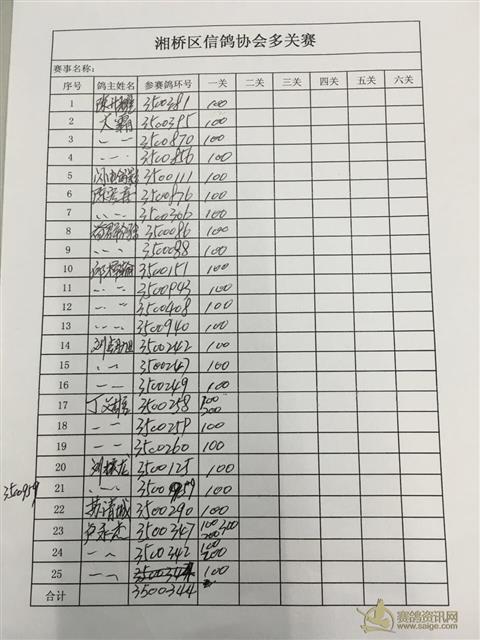 湘桥区信鸽协会多关赛
赛事名称:
序号 鸽主姓名 参赛鸽环号 一关 二关 三关 四关 五关 六关
1 3500381 100
2 大霸 3500395 100
3 〃 〃 3500870 100
4 〃 〃 3500856 100
5 3500111 100
6 3500876 100
7 〃 〃 3500306 100
8 3500086 100
9 〃 〃 3500088 100
10 3500151 100
11 〃 〃 3500943 100
12 〃 〃 3500408 100
13 〃 〃 3500940 100
14 3500242 100
15 〃 〃 3500247 100
16 〃 〃 3500249 100
17 3500258 100 200
18 〃 〃 3500259 100
19 〃 〃 3500260 100
20 3500125 100
3500959
21 〃 〃 3500959 100
22 苏清城 3500290 100
23 3500347 100 200 300
24 〃 〃 3500342 100 200
25 〃 〃 100
合计 3500344
赛鸽资讯网
www.saige.com